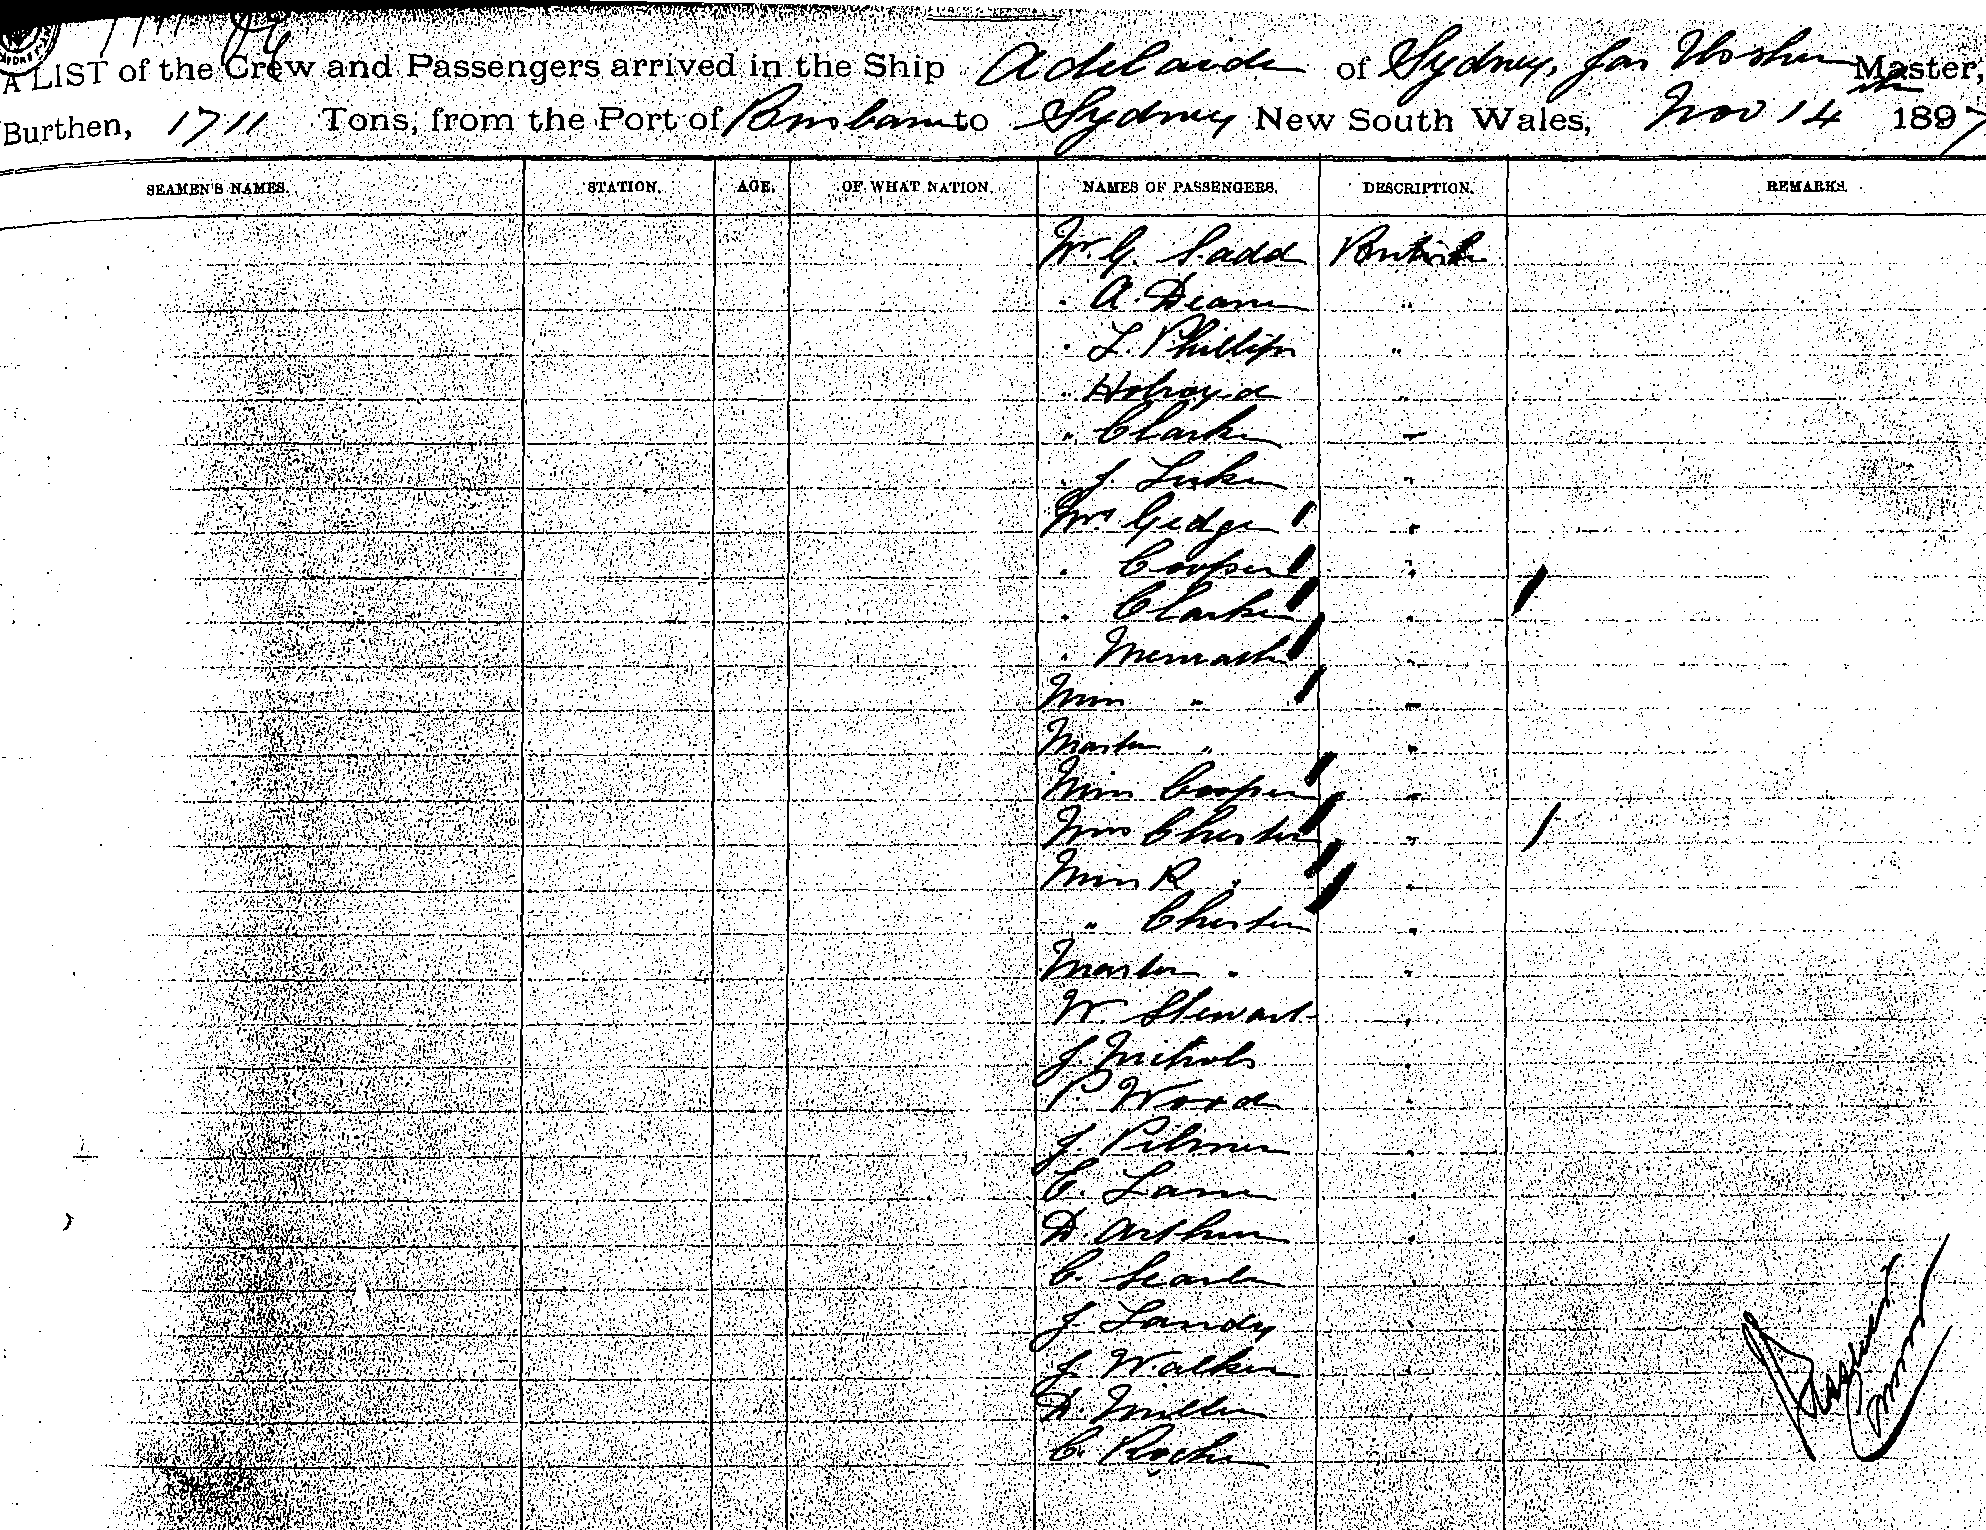 A LIST of the Crew and Passengers arrived in the Ship Adelaide of Sydney, Jas Master,
Burthen, 1711 Tons, from the Port of Brisbane to Sydney New South Wales, Nov 14th 1897
SEAMEN'S NAMES. STATION. AGE. OF WHAT NATION. NAMES OF PASSENGERS. DESCRIPTION. REMARKS.
Mr. G. Sadd British
" A. Deane "
" L. Phillips "
" Holroyd "
" Clarke "
" J. "
Mrs Gedge "
" Cooper "
" Clarke "
" "
Miss " "
Master " "
Miss Cooper "
Mrs Chester "
Miss R " "
" Chester "
Master " "
W. Stewart "
J. Nichols "
P. Wood "
J. Pilmer "
C. Lane "
D. Arthur "
C. Searle "
J. Landy "
J. Walker "
D. Miller "
C. Roche